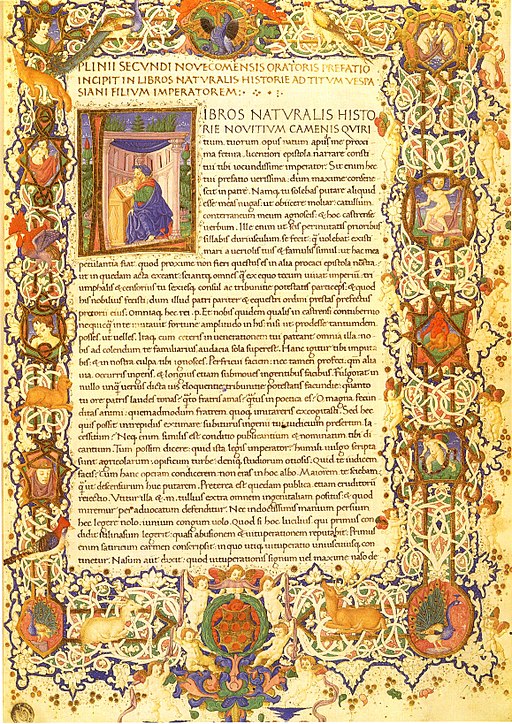 PLINII SECVNDI NOVECOMENSIS ORATORIS PREFATIO
INCIPIT IN LIBROS NATVRALIS HISTORIE AD TITVM VESPA
SIANI FILIVM IMPERATOREM
IBROS NATVRALIS HISTO
RIE NOVITIVM CAMENIS QVIRI
tium tuorum opus natum apud me proxi
ma fetura licentiori epistola narrare consti
tui tibi iocundissime imperator. Sit enim hec
tui prefatio verissima dum maxime consene
scit in patre. Namque tu solebas putare aliquid
esse meas nugas ut obiicere moliar catullum
conterraneum meum agnoscis et hoc castrense
verbum. Ille enim ut scis permutatis prioribus
sillabis duriusculum se fecit quam volebat existi
mari a verniolis tuis et famulis simul ut hac mea
petulantia fiat quod proxime non fieri questus es in alia procaci epistola nostra
ut in quedam acta exeant sciantque omnes quam ex equo tecum vivat imperium tri
umphalis et censorius tu sexiesque consul ac tribunitie potestatis particeps et quod
his nobilius fecisti dum illud patri pariter et equestri ordini prestas prefectus
pretorii eius. Omniaque hec rei p. Et nobis quidem qualis in castrensi contubernio
nec quicquam in te mutavit fortune amplitudo in his nisi ut prodesse tantumdem
posses ut velles. Itaque cum ceteris in venerationem tui pateant omnia illa no
bis ad colendum te familiarius audacia sola superest. Hanc igitur tibi imputa
bis et in nostra culpa tibi ignosces. Perfricui faciem nec tamen profeci quin alia
via occurris ingens et longius etiam submoues ingentibus facibus. Fulgorat in
nullo unquam verius dicta vis eloquentie tribunitie potestatis facundie quanto
tu ore patris laudes tonas quanto fratris amas quantus in poetica es O magna fecun
ditas animi quemadmodum fratrem quoque imitareris excogitasti. Sed hec
quis possit intrepidus extimare subiturus ingenii tui iudicium presertim la
cessitum Neque enim similis est conditio publicantium et nominatim tibi di
cantium. Tum possem dicere quid ista legis imperator humili vulgo scripta
sunt agricolarum opificum turbe deinde studiorum otiosis. Quid te iudicem
facis cum hanc operam condicerem non eras in hoc albo. Maiorem te sciebam
quam ut descensurum huc putarem. Preterea est quedam publica etiam eruditorum
reiectio. Vtitur illa et m. tullius extra omnem ingenii aliam positus et quod
miremur per advocatum defenditur. Nec indoctissimis manium persium
hec legere nolo iunium congum volo. Quod si hoc lucilius qui primus con
didit stili nasum legerit quasi abusionem et vituperationem reputabit Primus
enim satiricum carmen conscripsit in quo utique vituperatio uniuscuiusque con
tinetur. Nasum autem dixit quod vituperationis signum vel maxime naso de